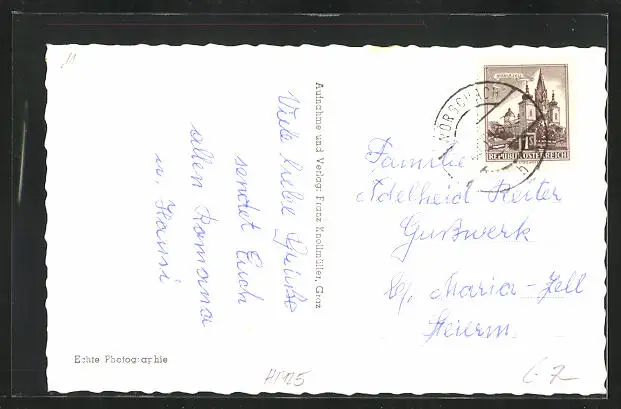 Viele liebe Grüße
sendet Euch
allen Romana
u. Hansi
Aufnahme und Verlag: Franz Knollmüller, Graz
Echte Photographie
WÖRSCHACH
MARIAZELL
1S
REPUBLIK ÖSTERREICH
Familie
Adelheid Reiter
Gußwerk
b/ Maria-Zell
Steierm.